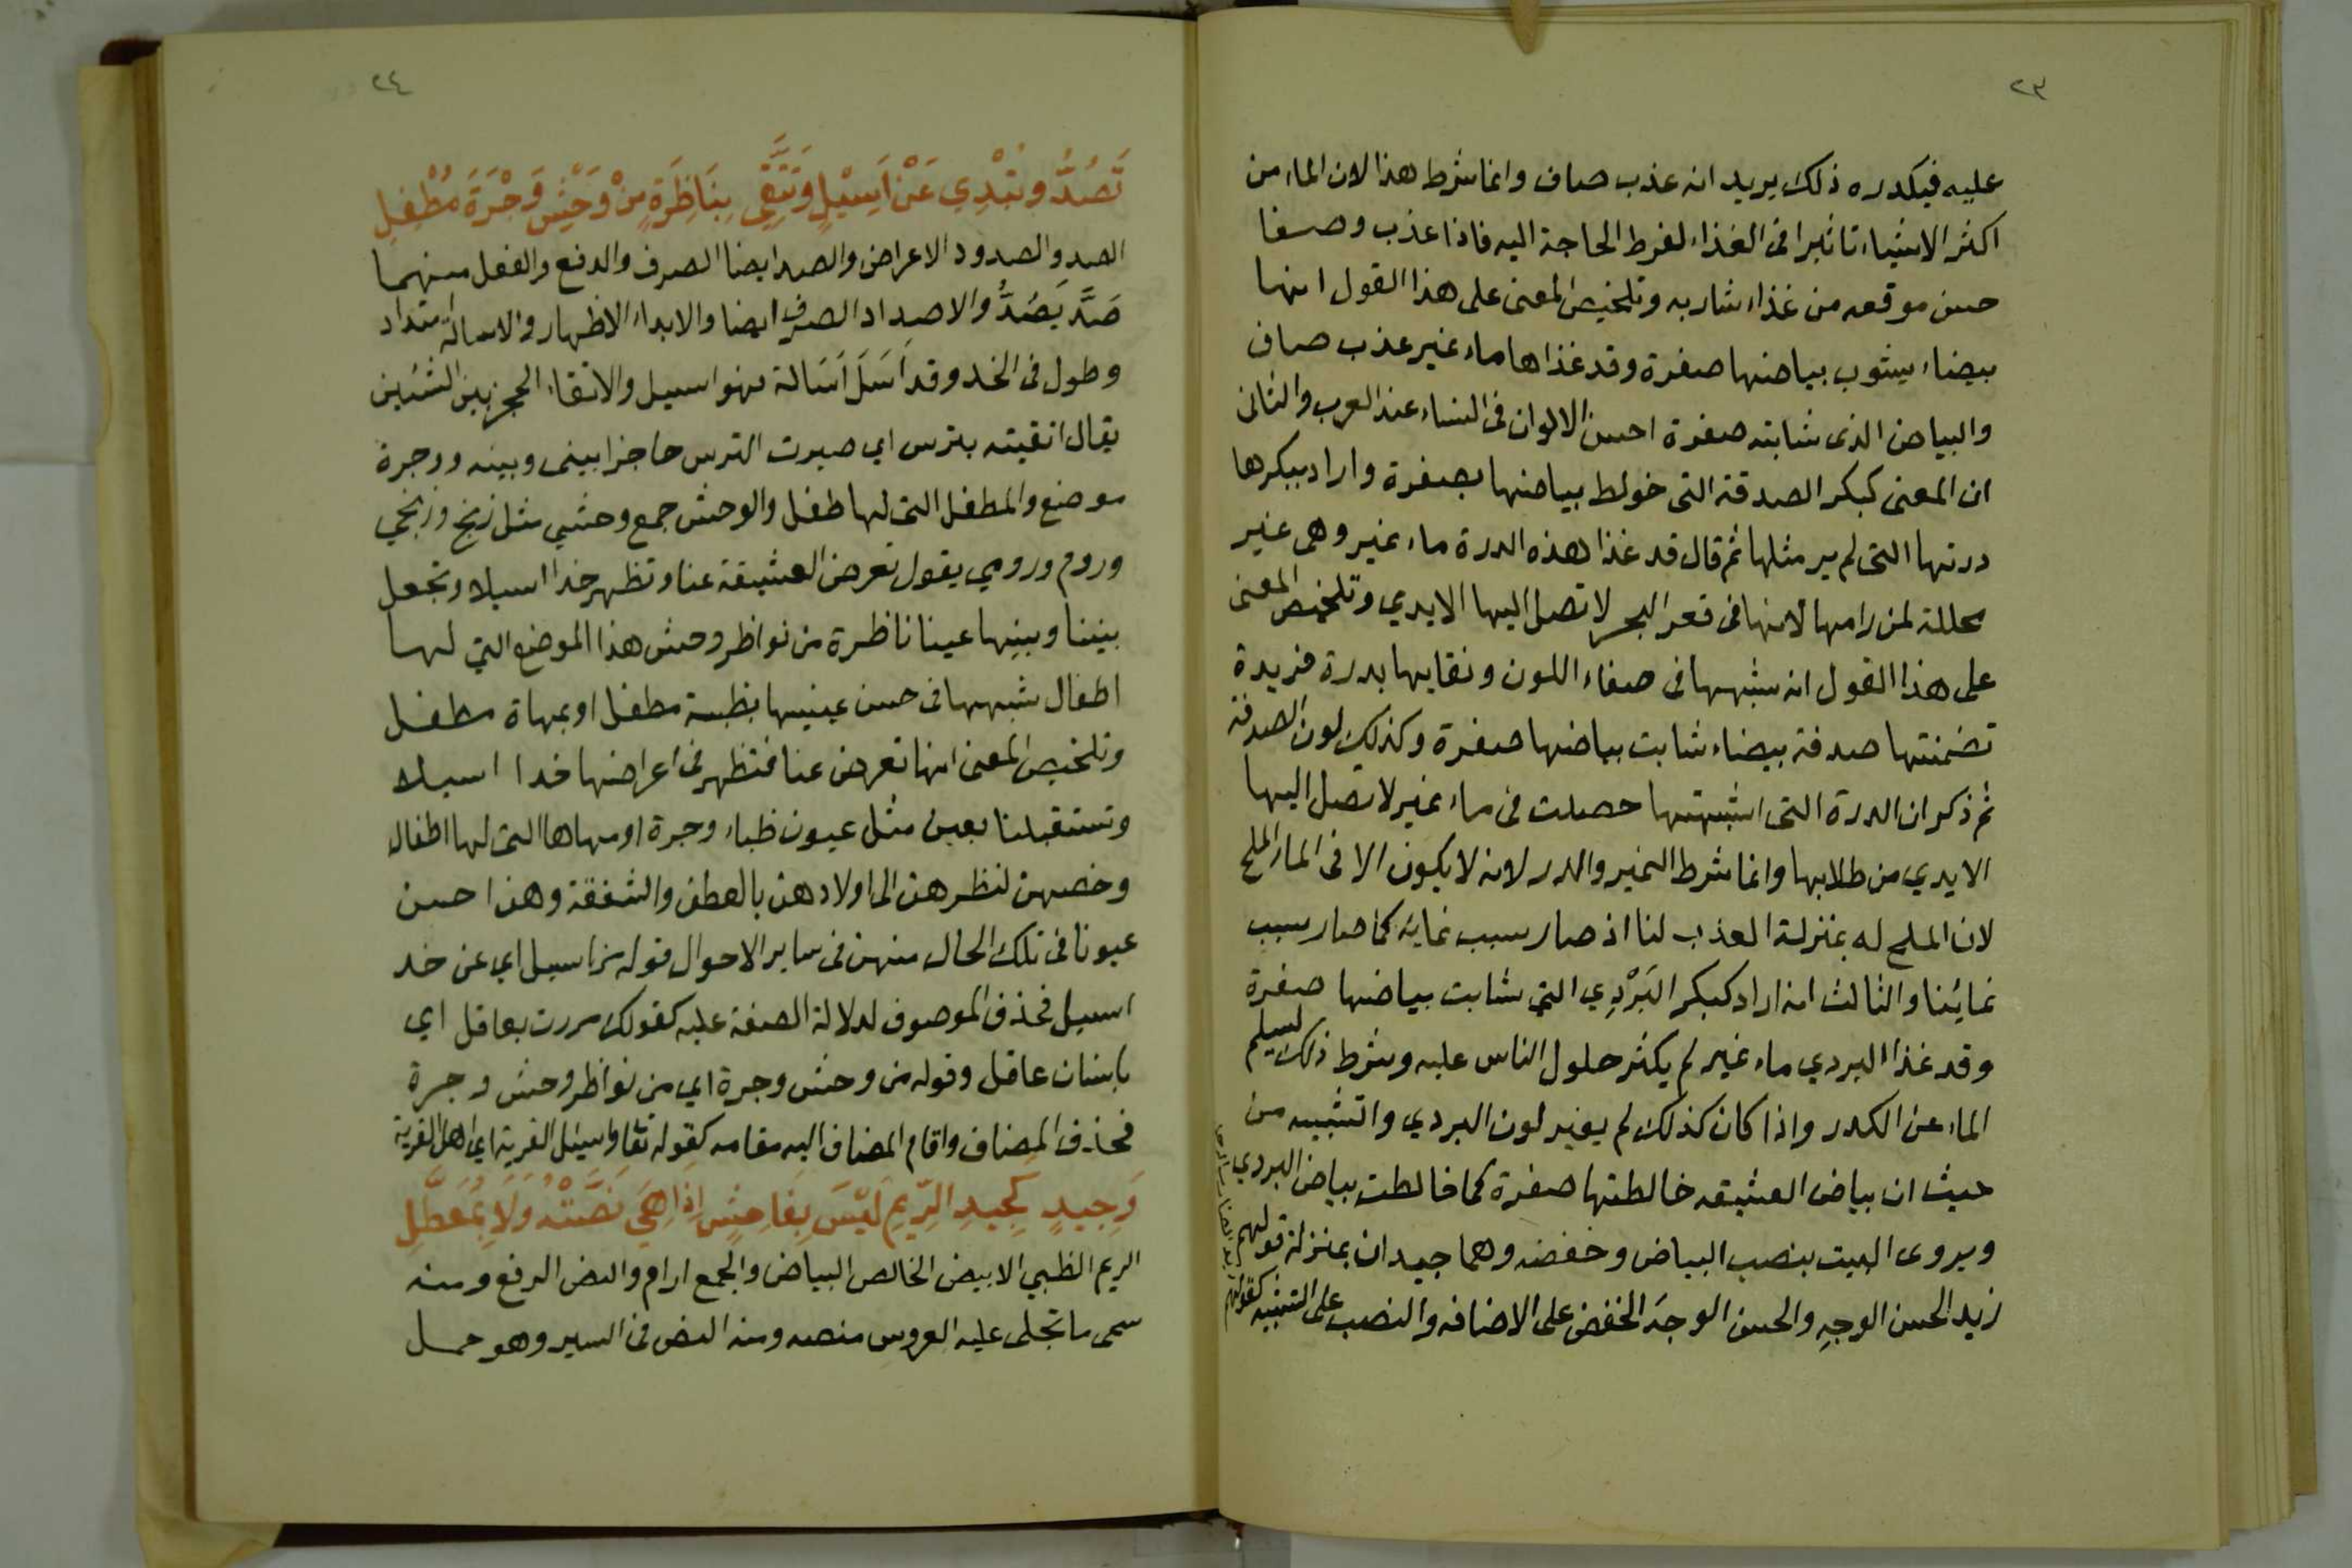 ٢٣
عليه فيكدره ذلك يريد انه عذب صاف وانما شرط هذا لان الماء من
اكثر الاشياء تاثيرا فى الغذاء لفرط الحاجة اليه فاذا عذب وصفا
حسن موقعه من غذاء شاربه وتلخيص المعنى على هذا القول انها
بيضاء يشوب بياضها صفرة وقد غذاها ماء نمير عذب صاف
والبياض الذى شابته صفرة احسن الالوان فى النساء عند العرب والثانى
ان المعنى كبكر الصدقة التى خولط بياضها بصفرة واراد ببكرها
درتها التى لم ير مثلها ثم قال قد غذا هذه الدرة ماء نمير وهى غير
محللة لمن رامها لانها فى قعر البحر لا تصل اليها الايدي وتلخيص المعنى
على هذا القول انه شبهها فى صفاء اللون ونقايها بدرة فريدة
تضمنتها صدفة بيضاء شابت بياضها صفرة وكذلك لون الصدفة
ثم ذكر ان الدرة التى اشبهتها حصلت فى ماء نمير لا تصل اليها
الايدي من طلابها وانما شرط النمير والدر لانه لا يكون الا فى الماء الملح
لان الملح له بمنزلة العذب لنا اذ صار سبب نمايه كما صار سبب
نمائنا والثالث انه اراد كبكر البَرْدِي التي شابت بياضها صفرة
وقد غذا البردي ماء نمير لم يكثر حلول الناس عليه وشرط ذلك ليسلم
الماء عن الكدر واذا كان كذلك لم يغير لون البردي والتشبيه من
حيث ان بياض العشيقه خالطتها صفرة كما خالطت بياض البردي
ويروى البيت بنصب البياض وخفضه وهما جيدان بمنزلة قولهم
زيد الحسن الوجهِ والحسن الوجهَ الخفض على الاضافه والنصب على التشبيه كقولهم
٢٤
تَصُدُّ وتُبْدِي عَنْ اَسِيْلٍ وَتَتَّقِي بِنَاظِرَةٍ مِنْ وَحْشِ وَجْرَةَ مُطْفِلِ
الصد والصدود الاعراض والصد ايضا الصرف والدفع والفعل منهما
صَدَّ يَصُدُّ والاصداد الصرف ايضا والابداء الاظهار والاسالة امتداد
وطول فى الخد وقد اَسَلَ اَسَالة فهو اسيل والاتقاء الحجز بين الشئين
يقال اتقيته بترس اي صيرت الترس حاجزا بينى وبينه ووجرة
موضع والمطفل التى لها طفل والوحش جمع وحشي مثل زنج وزنجي
وروم ورومي يقول تعرض العشيقة عنا وتظهر خدا اسيلا وتجعل
بيننا وبينها عينا ناظرة من نواظر وحش هذا الموضع التي لها
اطفال شبهها فى حسن عينيها بظبية مطفل او بمهاة مطفل
وتلخيص المعنى انها تعرض عنا فتظهر فى اعراضها خدا اسيلا
وتستقبلنا بعين مثل عيون ظباء وجرة او مهاها التى لها اطفال
وخصهن لنظرهن الى اولادهن بالعطف والشفقة وهن احسن
عيونا فى تلك الحال منهن فى ساير الاحوال قوله عن اسيل اي عن خد
اسيل فحذف الموصوف لدلالة الصفة عليه كقولك مررت بعاقل اي
بانسان عاقل وقوله من وحش وجرة اي من نواظر وحش وجرة
فحذف المضاف واقام المضاف اليه مقامه كقوله تعا واسئل القرية اي اهل القرية
وَجِيدٍ كَجِيدِ الرِّيمِ لَيْسَ بِفَاحِشٍ اِذَا هِيَ نَصَّتْهُ وَلَا بِمُعَطَّلِ
الريم الظبي الابيض الخالص البياض والجمع ارام والنص الرفع ومنه
سمى ما تجلى عليه العروس منصه ومنه النص فى السير وهو حمل